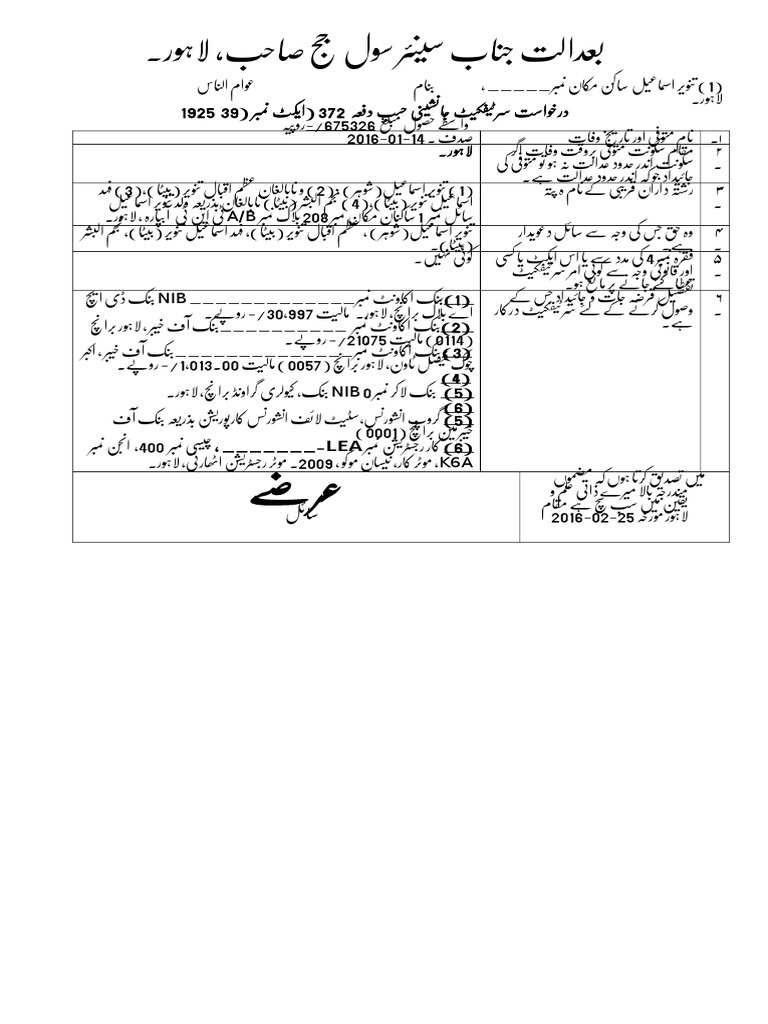 بعدالت جناب سینئر سول جج صاحب، لاہور۔
(1) تنویر اسماعیل ساکن مکان نمبر_____، لاہور۔ بنام عوام الناس
درخواست سرٹیفکیٹ جانشینی حسب دفعہ 372 (ایکٹ نمبر) 39 1925
واسطے حصول مبلغ 675326/-روپیہ
۱۔ نام متوفی اور تاریخ وفات
صدف۔ 14-01-2016
۲۔ مقام سکونت متوفی بروقت وفات اگر
سکونت اندر حدود عدالت نہ ہو تو متوفی کی
جائیداد جو کہ اندر حدود عدالت ہے۔
لاہور۔
۳۔ رشتہ داران قریبی کے نام و پتہ
(1) تنویر اسماعیل (شوہر)، (2) و نابالغان عظم اقبال تنویر (بیٹا)، (3) فہد
اسماعیل تنویر (بیٹا)، (4) نجم البشر (بیٹا) نابالغان بذریعہ والد تنویر اسماعیل
سائل نمبر 1 ساکنان مکان نمبر 208 بلاک نمبر A/B
۴۔ وہ حق جس کی وجہ سے سائل دعویدار
ہے۔
تنویر اسماعیل (شوہر)، عظم اقبال تنویر (بیٹا)، فہد اسماعیل تنویر (بیٹا)، نجم البشر
(بیٹا)۔
۵۔ فقرہ نمبر 4 کی مدد سے یا اس ایکٹ یا کسی
اور قانونی وجہ سے کوئی امر سرٹیفکیٹ
عطا کئے جانے پر مانع ہو۔
کوئی نہیں۔
۶۔ تفصیل قرضہ جات و جائیداد جس کے
وصول کرنے کے لئے سرٹیفکیٹ درکار
ہے۔
(1) بنک اکاونٹ نمبر_____________ NIB بنک ڈی ایچ
اے بلاک برانچ، لاہور۔ مالیت 30،997/- روپے۔
(2) بنک اکاونٹ نمبر __________بنک آف خیبر، لاہور برانچ
(0114) مالیت 21075/- روپے۔
(3) بنک اکاونٹ نمبر_____________بنک آف خیبر، اکبر
چوک فیصل ٹاون، لاہور برانچ (0057) مالیت 00۔1،013/- روپے۔
(4)
(5) بنک لاکر نمبر 0 NIB بنک، کیولری گراونڈ برانچ، لاہور۔
(6)
(5) گروپ انشورنس، سٹیٹ لائف انشورنس کارپوریشن بذریعہ بنک آف
خیبر مین برانچ (0001)
(6) کار رجسٹریشن نمبر LEA-_______، چیسی نمبر 400، انجن نمبر
K6A، موٹر کار، نیسان موکو، 2009۔ موٹر رجسٹریشن اتھارٹی، لاہور۔
میں تصدیق کرتا ہوں کہ مضمون
مندرجہ بالا میرے ذاتی علم و
یقین میں سب سچ ہے مقام
لاہور مورخہ 25-02-2016
عرضے
سائل